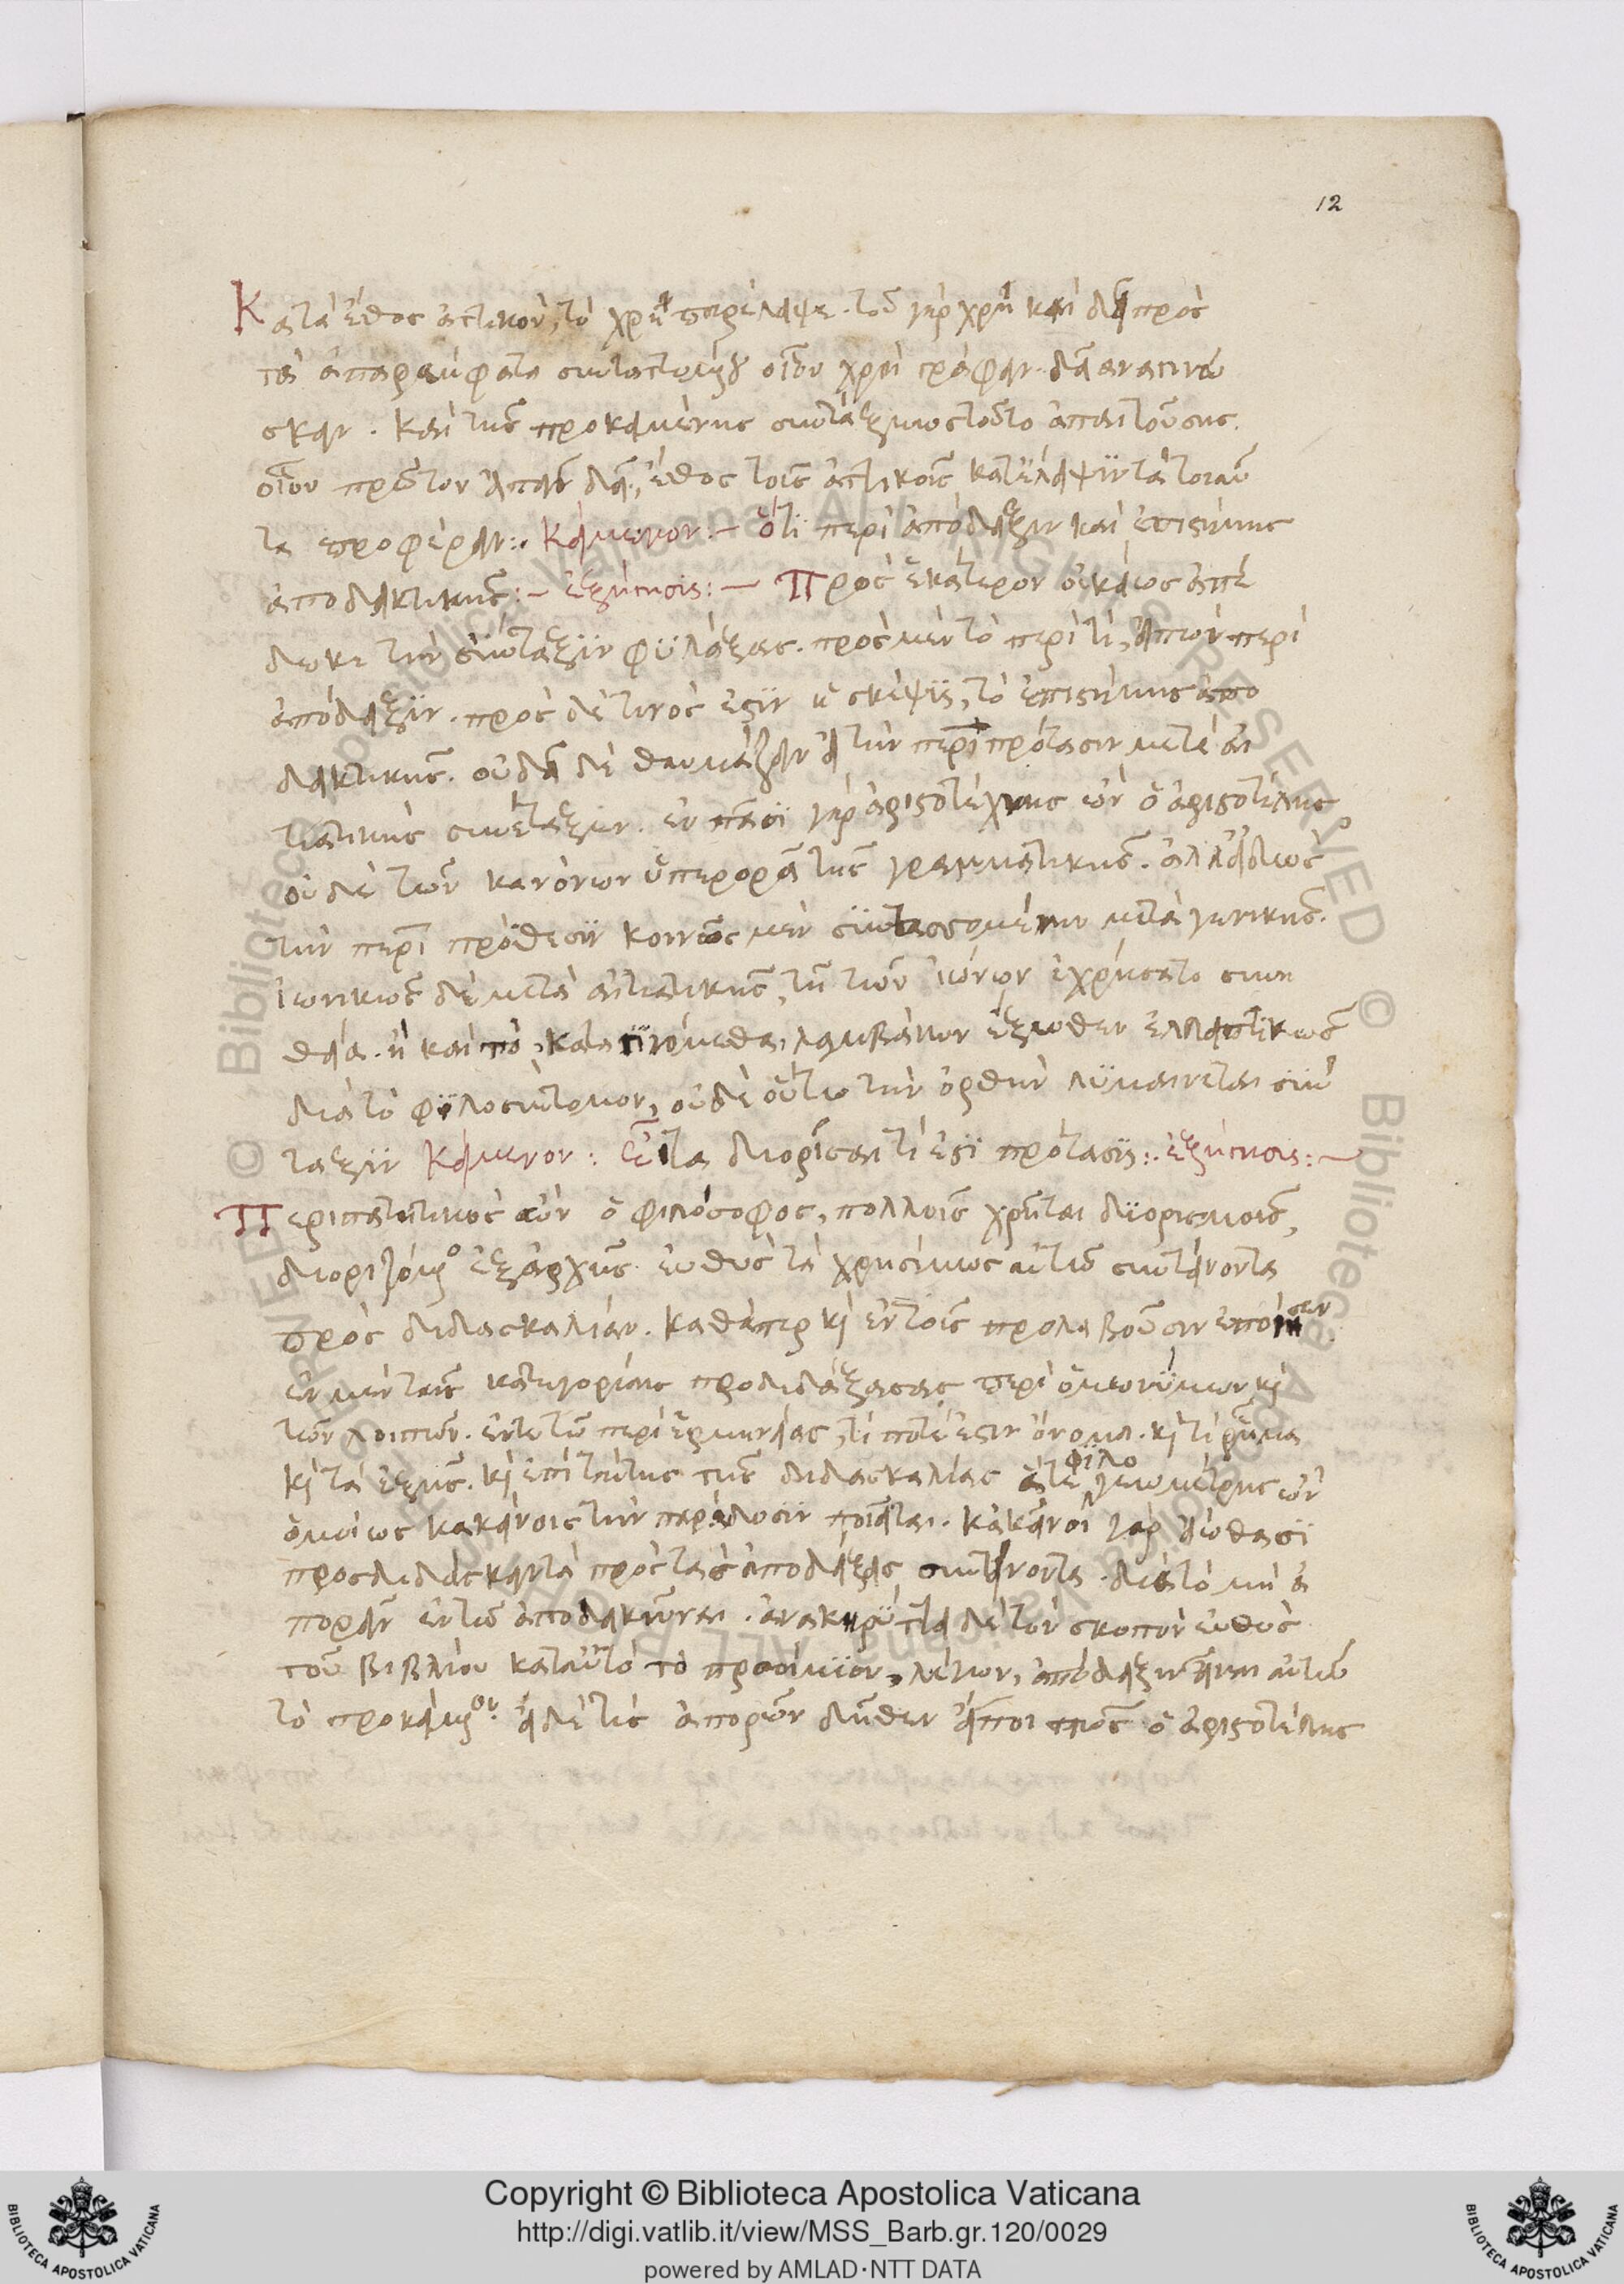 12
Κατὰ ἔθος ἀττικὸν, τὸ χρὴ παρέλειψε. τοῦ γὰρ χρὴ καὶ δεῖ πρὸς
τὰ ἀπαρέμφατα συντασσομένου οἷον χρὴ γράφειν. δεῖ αναγινώ
σκειν. καὶ τῆς προκειμένης συντάξεως τοῦτο ἀπαιτούσης.
οἷον πρῶτον εἰπεῖν δεῖ, ἔθος τοῖς ἀττικοῖς κατέλειψϊν τὰ τοιαῦ
τα προφέρειν:. Κείμενον:- ὅτι περὶ ἀπόδειξιν καὶ ἐπιστήμης
ἀποδεικτικῆς:- ἐξήγησις:- Πρὸς ἑκάτερον οἰκείως ἀπέ
δωκε τὴν σύνταξϊν φϋλάξας. πρὸς μὲν τὸ περὶ τί, εἰπὼν περὶ
ἀπόδειξϊν. πρὸς δὲ τινός ἐστϊν ἡ σκέψϊς, τὸ ἐπιστήμης ἀπο
δεικτικῆς. οὐ δεῖ δὲ θαυμάζειν εἰ τὴν περὶ πρότασιν μετὰ αἰ
τιατικῆς συνέταξεν. ἐν πᾶσϊ γὰρ ἀριστοτέχνης ὢν ὁ ἀριστοτέλης
οὐδὲ τῶν κανόνων ὑπερορᾶ τῆς γραμματικῆς. ἀλλ' εἰδὼς
τὴν περὶ πρόθεσϊν κοινῶς μὲν σϋντασσομένην μετὰ γενικῆς.
ἰωνικῶς δὲ μετὰ αἰτιατικῆς, τῆ τῶν ἰώνων ἐχρήσατο συνη
θεία. ἢ καὶ τὸ, καταγϊνόμεθα, λαμβάνων ἔξωθεν ἐλλειπτϊκῶς
διὰ τὸ φϊλοσύντομον, οὐδὲ οὕτω τὴν ὀρθὴν λϋμαίνεται σϋν
ταξϊν Κείμενον: Εἶτα διορίσαι τί ἐστϊ πρότασϊς:. ἐξήγησις:-
Περιπατητικὸς ὢν ὁ φιλόσοφος, πολλοῖς χρῆται δϊορισμοῖς,
διοριζόμενος ἐξαρχῆς εὐθὺς τὰ χρησίμως αὐτῶ συντείνοντα
πρὸς διδασκαλίαν. καθάπερ κὶ ἐν τοῖς προλαβοῦσιν ἐποίησεν
ἐν μὲν ταῖς κατηγορίαις προδιδάξασας περὶ ὁμωνύμων κὶ
τῶν λοιπῶν. ἐν τε τῶ περὶ ἑρμηνείας, τί ποτέ ἐστιν ὄνομα. κὶ τί ρῆμα
κὶ τὰ ἑξῆς. κὶ ἐπὶ ταύτης τῆς διδασκαλίας ἅτε φϊλογεωμέτρης ὢν
ὁμοίως κακείνοις τὴν παράδοσϊν ποιεῖται. κακεῖνοι γὰρ εἰώθασϊ
προσδιδάσκειν τὰ πρὸς τὰς ἀποδείξεις συντείνοντα. διὰ τὸ μὴ ἀ
πορεῖν ἐν τῶ ἀποδεικνῦναι. ἀνακηρύττει δὲ τὸν σκοπὸν εὐθὺς
τοῦ βιβλίου κατ' αὐτὸ τὸ προοίμϊον, λέγων, ἀπόδειξιν εἶναι αὐτῶ
τὸ προκείμενον. εἰ δέ τις ἀπορῶν δῆθεν εἴποι πῶς ὁ ἀριστοτέλης
Copyright © Biblioteca Apostolica Vaticana
http://digi.vatlib.it/view/MSS_Barb.gr.120/0029
powered by AMLAD·NTT DATA